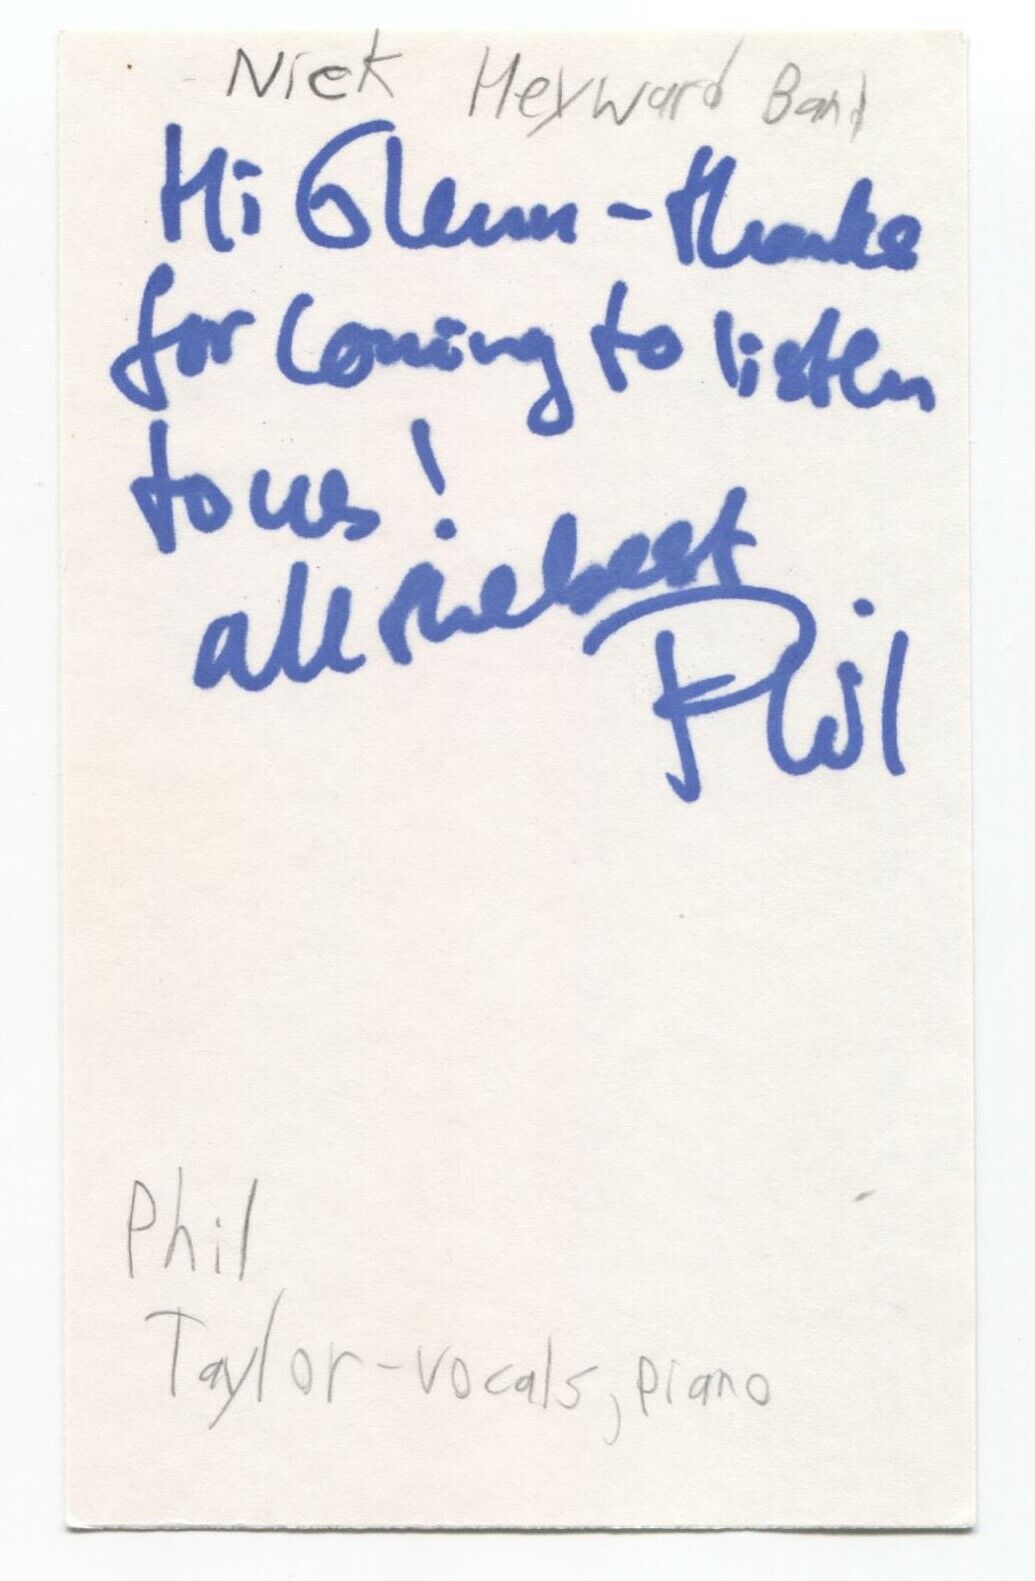 Nick Heyward Band
Hi Glenn - thanks
for coming to listen
to us!
all the best
Phil
Phil
Taylor - vocals, piano